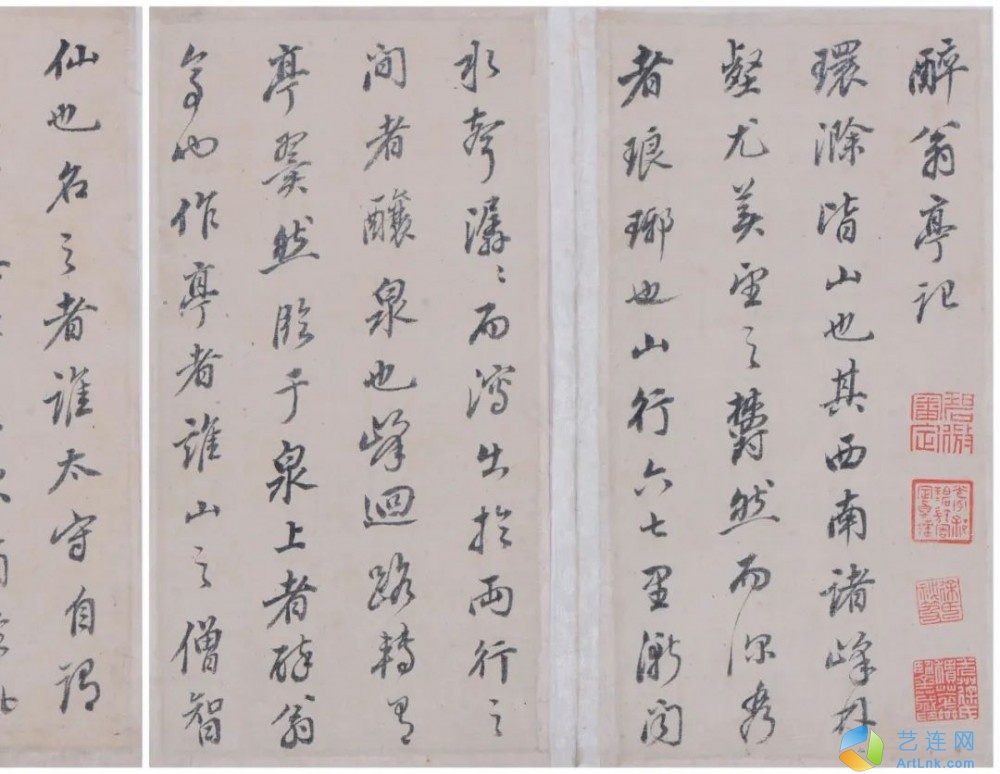 醉翁亭記
環滁皆山也其西南諸峰林
壑尤美望之欝然而深秀
者琅琊也山行六七里漸聞
水聲潺々而瀉出於兩行之
間者釀泉也峰迴路轉有
亭翼然臨于泉上者醉翁
亭也作亭者誰山之僧智
仙也名之者誰太守自謂
艺连网
ArtLnk.com